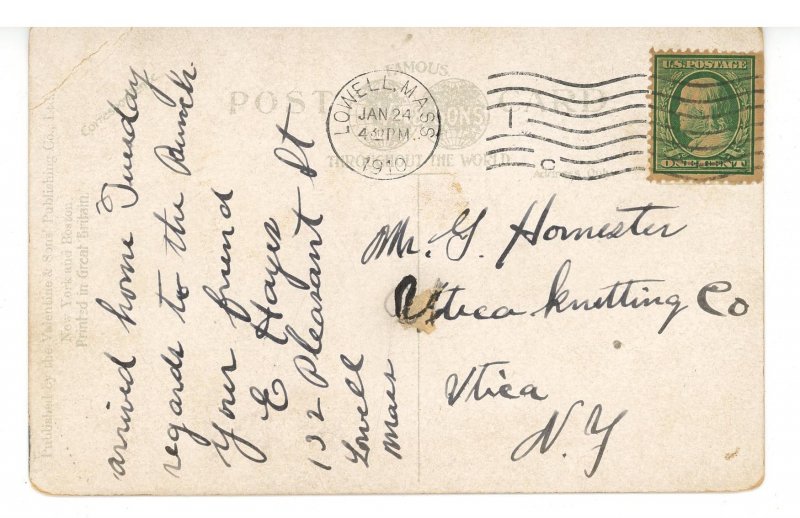 arrived home Tuesday
regards to the Bunch
Your friend
E Hayes
132 Pleasant St
Lowell
Mass
Mr. G. Homester
Utica Knitting Co
Utica
N.Y
LOWELL, MASS
JAN 24
4 PM
1910
1
C
U.S. POSTAGE
ONE CENT
FAMOUS
THROUGHOUT THE WORLD
POST CARD
Published by the Valentine & Sons' Publishing Co., Ltd.
New York and Boston.
Printed in Great Britain